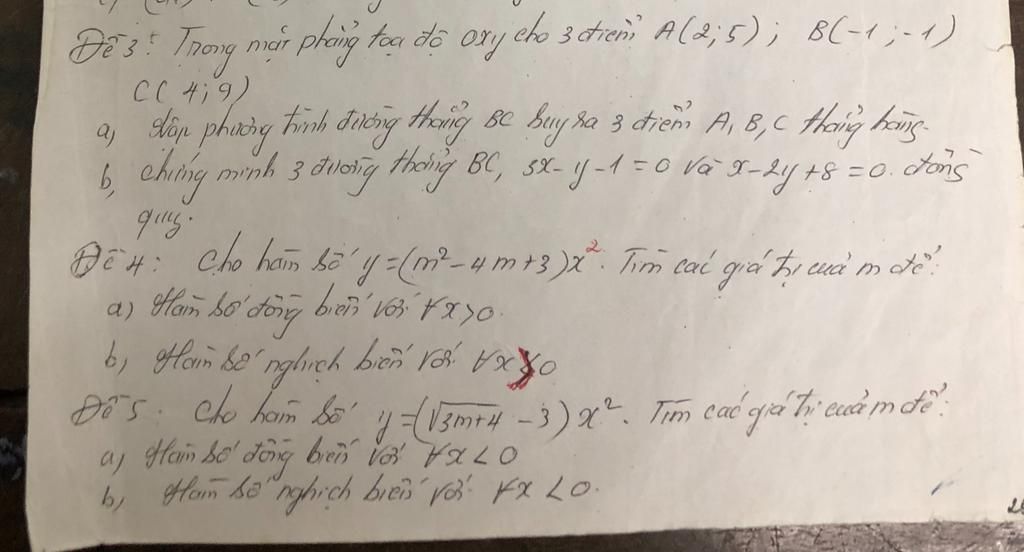 Đề 3: Trong mặt phẳng tọa độ Oxy cho 3 điểm A(2;5); B(-1;-1)
C(4;9)
a, Lập phương trình đường thẳng BC suy ra 3 điểm A, B, C thẳng hàng.
b, chứng minh 3 đường thẳng BC, 3x-y-1=0 và x-2y+8=0. đồng
quy.
Đề 4: Cho hàm số y=(m²-4m+3)x². Tìm các giá trị của m để:
a) Hàm số đồng biến với ∀x>0.
b, Hàm số nghịch biến với ∀x 0
Đề 5. Cho hàm số y=(√3m+4 -3)x². Tìm các giá trị của m để:
a, Hàm số đồng biến với ∀x<0
b, Hàm số nghịch biến với ∀x<0.